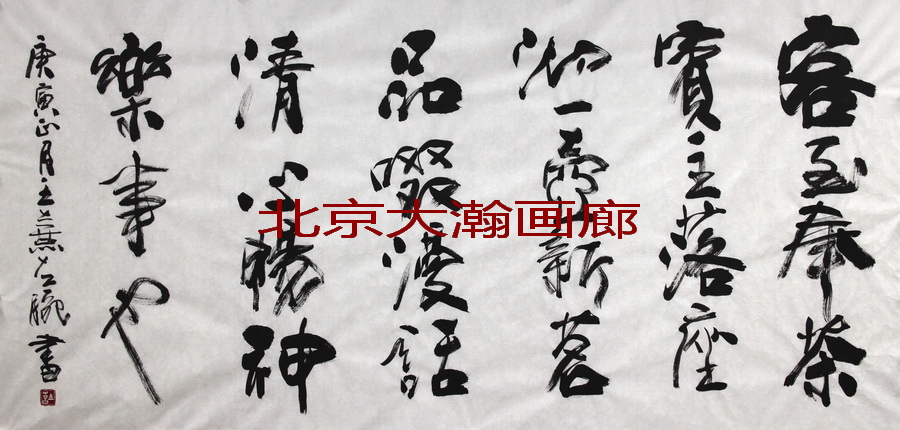 客至奉茶
賓主落座
沏一壺新茗
品啜漫話
清心暢神
樂事也
庚寅正月左腕書
北京大瀚画廊